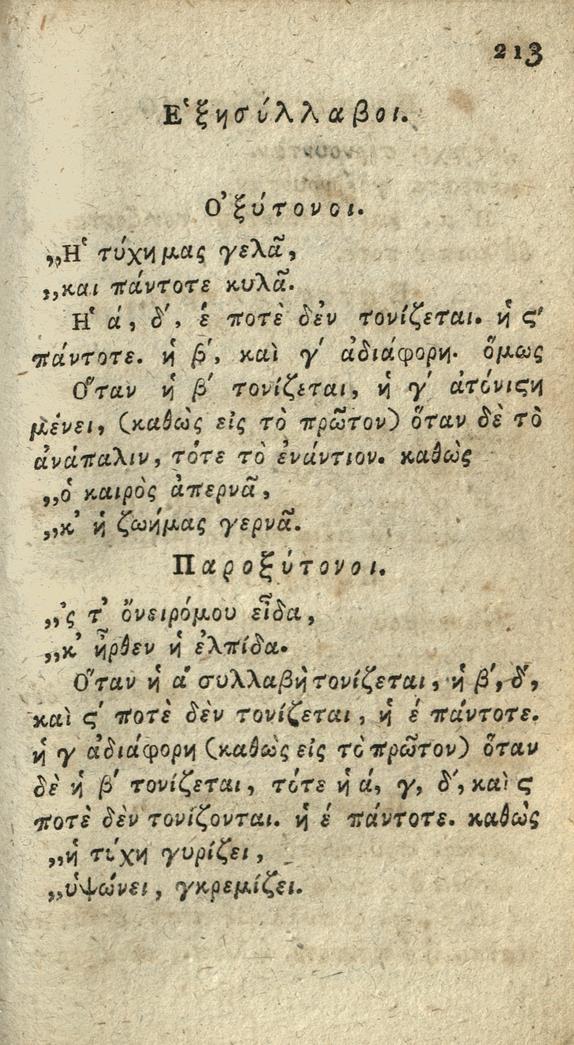 213
Ἑξησύλλαβοι.
Ὀξύτονοι.
„Ἡ τύχημας γελᾶ,
„και πάντοτε κυλᾶ.
Ἡ ά, δ', έ ποτὲ δὲν τονίζεται. ἡ ϛ'
πάντοτε. ἡ β', καὶ γ' ἀδιάφορη. ὅμως
Ὅταν ἡ β' τονίζεται, ἡ γ' ἀτόνιϛη
μένει, (καθὼς εἰς τὸ πρῶτον) ὅταν δὲ τὸ
ἀνάπαλιν, τότε τὸ ἐνάντιον. καθὼς
„ὁ καιρὸς ἀπερνᾶ,
„κ' ἡ ζωήμας γερνᾶ.
Παροξύτονοι.
„'ς τ' ὄνειρόμου εἶδα,
„κ' ἦρθεν ἡ ἐλπίδα.
Ὅταν ἡ α' συλλαβὴ τονίζεται, ἡ β', δ',
καὶ ϛ' ποτὲ δὲν τονίζεται, ἡ έ πάντοτε.
ἡ γ ἀδιάφορη (καθὼς εἰς τὸ πρῶτον) ὅταν
δὲ ἡ β' τονίζεται, τότε ἡ ά, γ, δ', καὶ ϛ
ποτὲ δὲν τονίζονται. ἡ έ πάντοτε. καθὼς
„ἡ τύχη γυρίζει,
„ὑψώνει, γκρεμίζει.